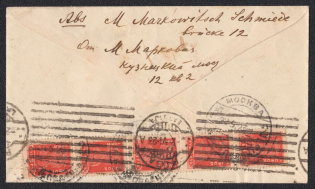 Abs M Markowitsch Schmiede
Brücke 12
От М Маркович
Кузнецкий мост
12 кв 2
МОСКВА